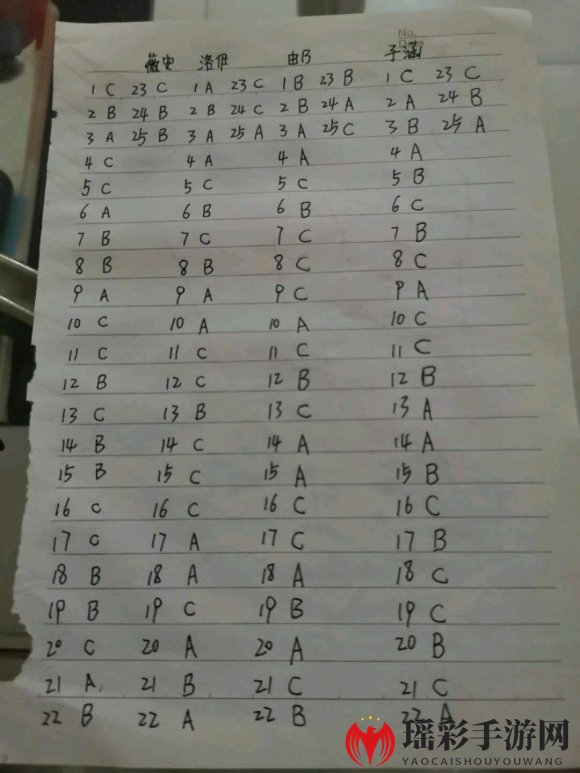 No.
薇安 洛伊 由乃 子涵
1 C 23 C 1 A 23 C 1 B 23 B 1 C 23 C
2 B 24 B 2 B 24 C 2 B 24 A 2 A 24 B
3 A 25 B 3 A 25 A 3 A 25 C 3 B 25 A
4 C 4 A 4 A 4 A
5 C 5 C 5 C 5 B
6 A 6 B 6 B 6 C
7 B 7 C 7 C 7 B
8 B 8 B 8 C 8 C
9 A 9 A 9 C 9 A
10 C 10 A 10 A 10 C
11 C 11 C 11 C 11 C
12 B 12 C 12 B 12 B
13 C 13 B 13 C 13 A
14 B 14 C 14 A 14 A
15 B 15 C 15 A 15 B
16 C 16 C 16 C 16 C
17 C 17 A 17 C 17 B
18 B 18 A 18 A 18 C
19 B 19 C 19 B 19 C
20 C 20 A 20 A 20 B
21 A 21 B 21 C 21 C
22 B 22 A 22 B 22 A
瑶彩手游网
YAOCAISHOUYOUWANG